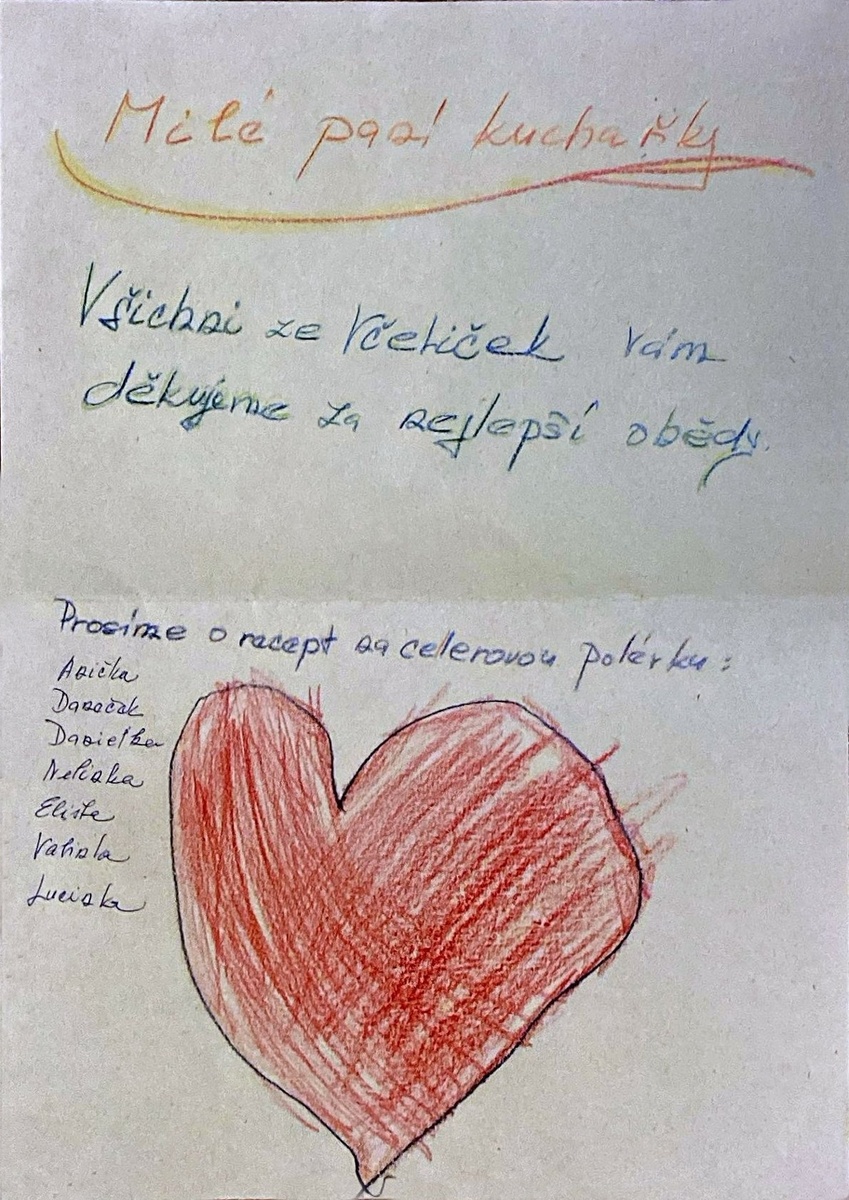 Milé paní kuchařky
Všichni ze Včeliček vám
děkujeme za nejlepší obědy.
Prosíme o recept na celerovou polévku:
Anička
Daneček
Danielka
Nelinka
Eliška
Lucinka